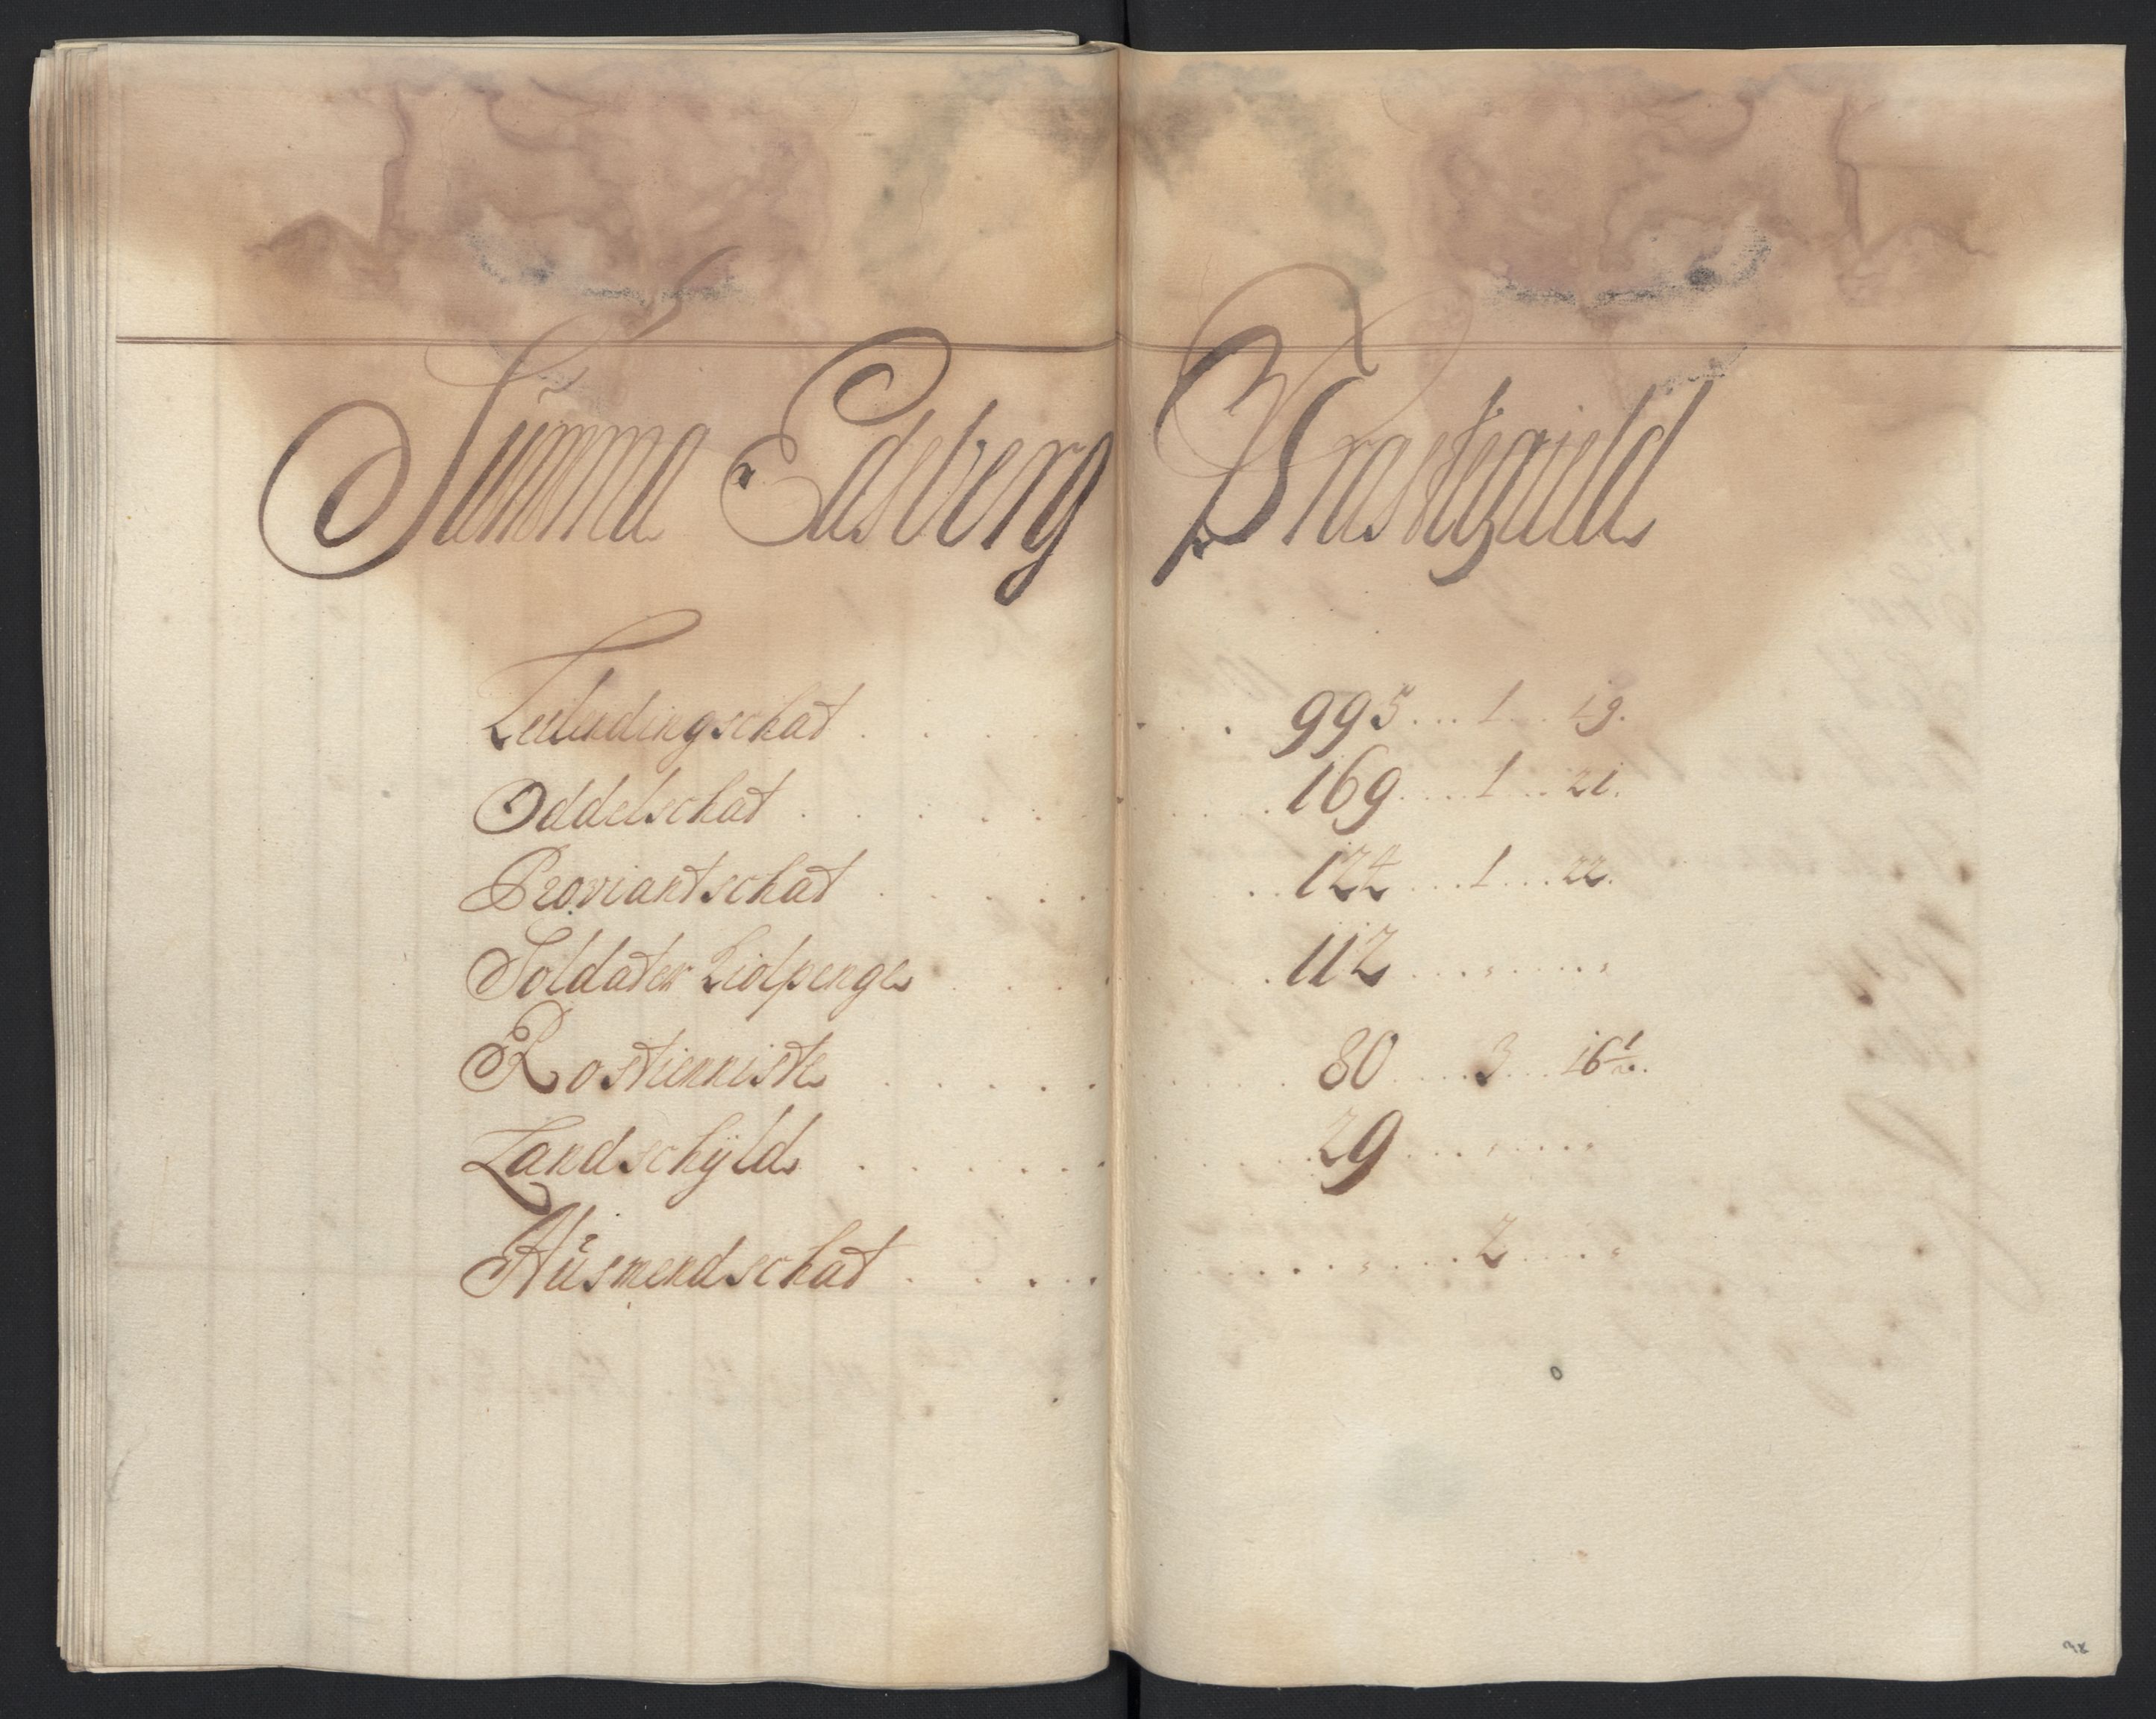 Summa Edsberg Præstegield
Leilendingschat . . . . . . 995 . . . 1 . . . 19.
Oddelschat . . . . . . 169 . . . 1 . . . 21.
Proviantschat . . . . . . 124 . . . 1 . . . 22.
Soldater Kiolpenge . . . . . 112 . . . „ . . . „
Rostienniste . . . . . . 80 . . . 3 . . . 16½.
Landschÿld . . . . . . 29 . . . „ . . . „
Hüsmendschat . . . . . . „ . . . 2 . . . „